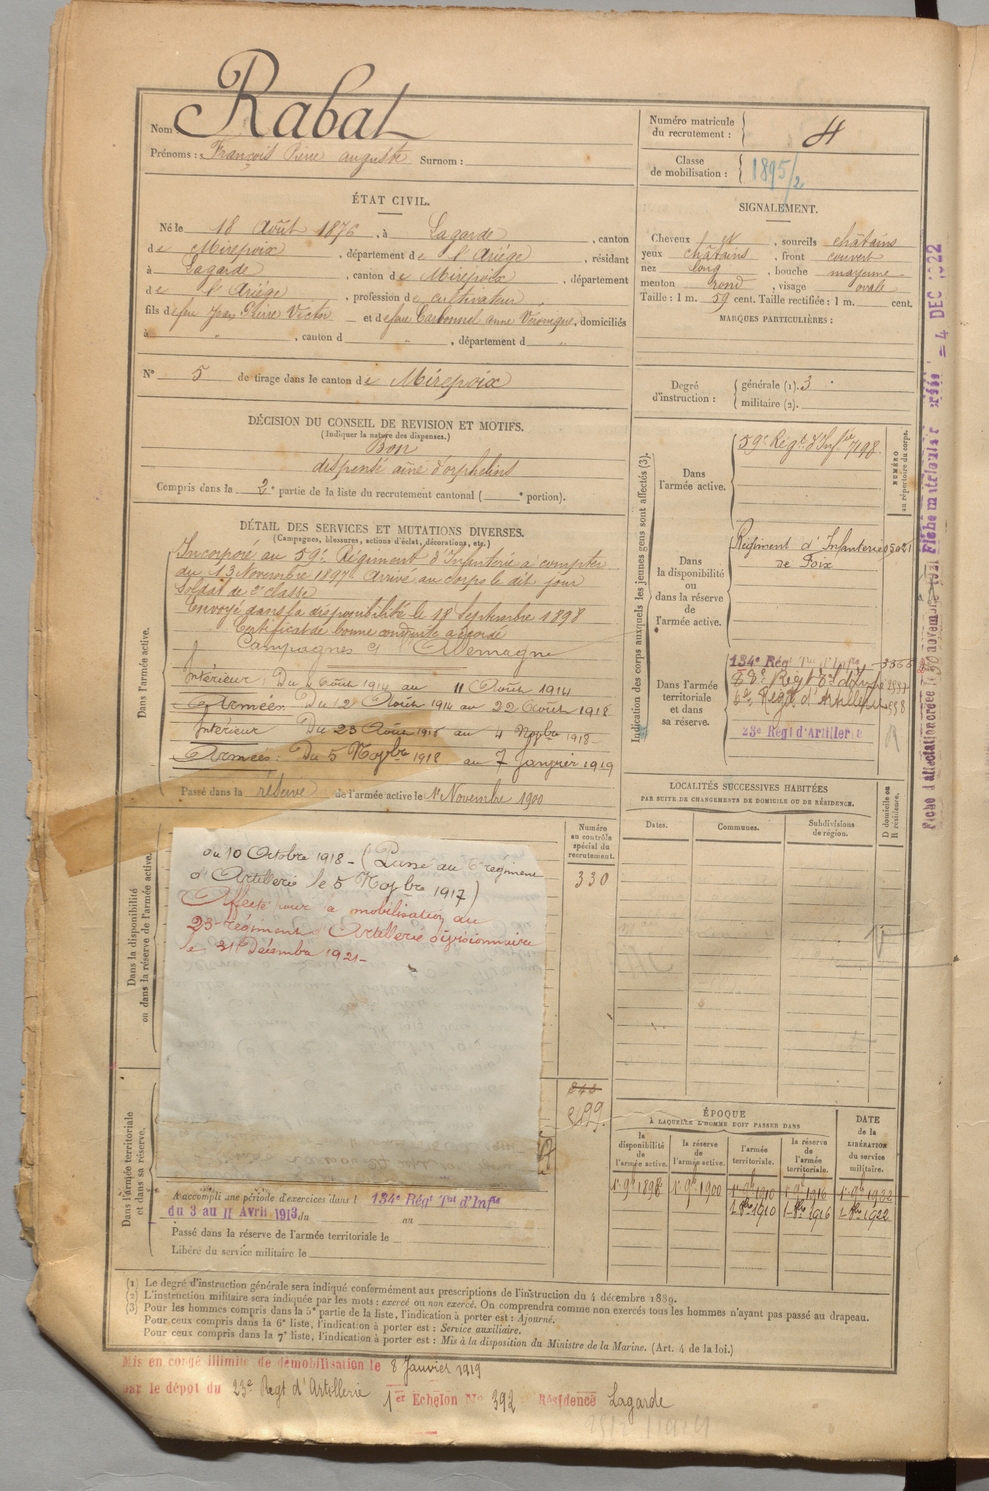 Nom Rabat
Prénoms : François Pierre auguste Surnom :
Numéro matricule du recrutement : 4
Classe de mobilisation : 1895/2
ÉTAT CIVIL.
Né le 18 Août 1876, à Lagarde, canton
de Mirepoix, département de l'Ariége, résidant
à Lagarde, canton de Mirepoix, département
de l'Ariége, profession de cultivateur,
fils de feu Jean Victor et de feue Carbonnel anne Véronique, domiciliés
à " , canton d " , département d "
N° 5 de tirage dans le canton de Mirepoix
SIGNALEMENT.
Cheveux et, sourcils châtains
yeux châtains, front couvert
nez long, bouche moyenne
menton rond, visage ovale
Taille : 1 m. 59 cent. Taille rectifiée : 1 m. cent.
MARQUES PARTICULIÈRES :
Degré d'instruction :
générale (1). 3
militaire (2).
DÉCISION DU CONSEIL DE REVISION ET MOTIFS.
(Indiquer la nature des dispenses.)
Bon
dispensé ainé d'orphelins
Compris dans la 2e partie de la liste du recrutement cantonal ( e portion).
DÉTAIL DES SERVICES ET MUTATIONS DIVERSES.
(Campagnes, blessures, actions d'éclat, décorations, etc.)
Dans l'armée active.
Incorporé au 59e Régiment d'Infanterie à compter
du 13 Novembre 1897. Arrivé au corps le dit jour
Soldat de 2e classe
Envoyé dans la disponibilité le 18 Septembre 1898
Certificat de bonne conduite accordé
Campagnes Allemagne
Intérieur : Du Août 1914 au 11 Août 1914
Armées Du 12 Août 1914 au 22 Août 1918
Intérieur Du 23 Août 1918 au 4 Novbre 1918
Armées : Du 5 Novbre 1918 au 7 Janvier 1919
Passé dans la réserve de l'armée active le 1er Novembre 1900
Dans la disponibilité ou dans la réserve de l'armée active.
Numéro au contrôle spécial du recrutement.
330
du 10 Octobre 1918 - (Passé au 6e régiment
d'Artillerie le 5 Novbre 1917)
Affecté pour la mobilisation au
23e régiment d'Artillerie divisionnaire
le 31 Décembre 1921
Dans l'armée territoriale et dans sa réserve.
899
A accompli une période d'exercices dans l 134e Régt Tal d'Infie
du 3 au 11 Avril 1913 du au
Passé dans la réserve de l'armée territoriale le
Libéré du service militaire le
Indication des corps auxquels les jeunes gens sont affectés (3).
NUMÉRO au répertoire du corps.
Dans l'armée active.
59e Régt d'Infrie 7198
Dans la disponibilité ou dans la réserve de l'armée active.
Régiment d'Infanterie
de Foix
Dans l'armée territoriale et dans sa réserve.
134e Régt Tal d'Infie
Régt d'Infie
6e Régt d'Artillerie
23e Régt d'Artillerie
LOCALITÉS SUCCESSIVES HABITÉES
PAR SUITE DE CHANGEMENTS DE DOMICILE OU DE RÉSIDENCE.
Dates. Communes. Subdivisions de région. D domicile ou R résidence.
ÉPOQUE
À LAQUELLE L'HOMME DOIT PASSER DANS
la disponibilité de l'armée active. la réserve de l'armée active. l'armée territoriale. la réserve de l'armée territoriale.
DATE de la LIBÉRATION du service militaire.
1er 9e 1898 1er 9e 1900 1er 9e 1910 1er 9e 1916 1er 9e 1922
1er 8bre 1910 1er 8bre 1916 1er 8bre 1922
(1) Le degré d'instruction générale sera indiqué conformément aux prescriptions de l'instruction du 4 décembre 1889.
(2) L'instruction militaire sera indiquée par les mots : exercé ou non exercé. On comprendra comme non exercés tous les hommes n'ayant pas passé au drapeau.
(3) Pour les hommes compris dans la 5e partie de la liste, l'indication à porter est : Ajourné.
Pour ceux compris dans la 6e liste, l'indication à porter est : Service auxiliaire.
Pour ceux compris dans la 7e liste, l'indication à porter est : Mis à la disposition du Ministre de la Marine. (Art. 4 de la loi.)
Mis en congé illimité de démobilisation le 8 Janvier 1919
par le dépôt du 23e Regt d'Artillerie
1er Echelon No 392 Résidence Lagarde